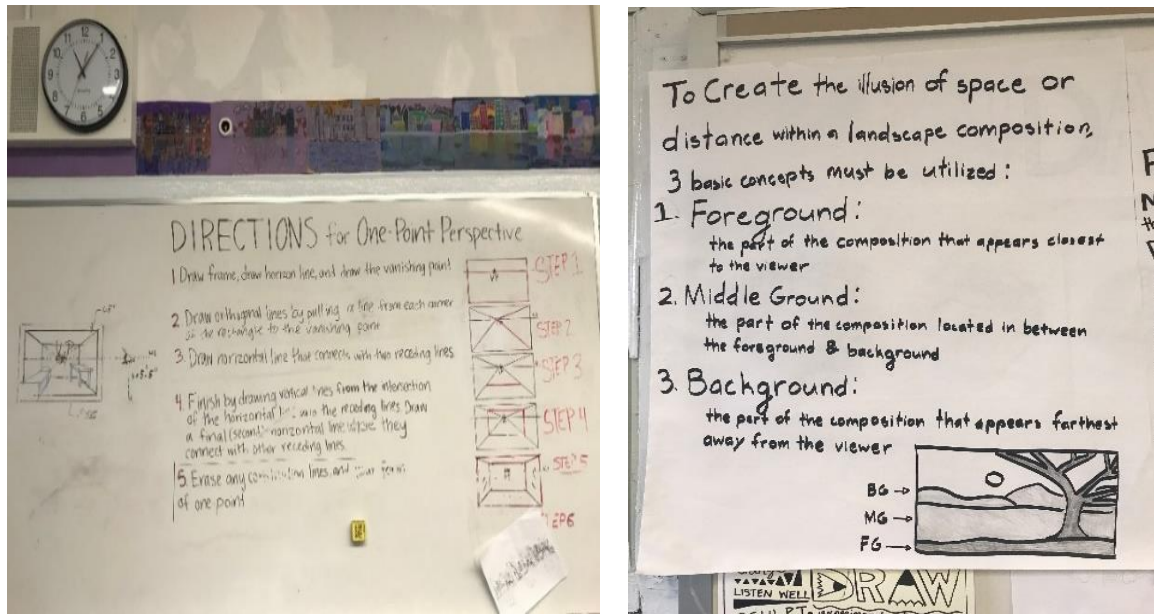 DIRECTIONS for One-Point Perspective
1 Draw frame, draw horizon line, and draw the vanishing point
2 Draw orthogonal lines by pulling a line from each corner
of the rectangle to the vanishing point
3. Draw horizontal line that connects with two receding lines
4. Finish by drawing vertical lines from the intersection
of the horizontal line with the receding lines. Draw
a final (second) horizontal line where they
connect with other receding lines.
5. Erase any lines, and
of one point
STEP 1
STEP 2
STEP 3
STEP 4
STEP 5
STEP 6
To Create the illusion of space or
distance within a landscape composition,
3 basic concepts must be utilized:
1. Foreground:
the part of the composition that appears closest
to the viewer
2. Middle Ground:
the part of the composition located in between
the foreground & background
3. Background:
the part of the composition that appears farthest
away from the viewer
BG
MG
FG
LISTEN WELL
DRAW